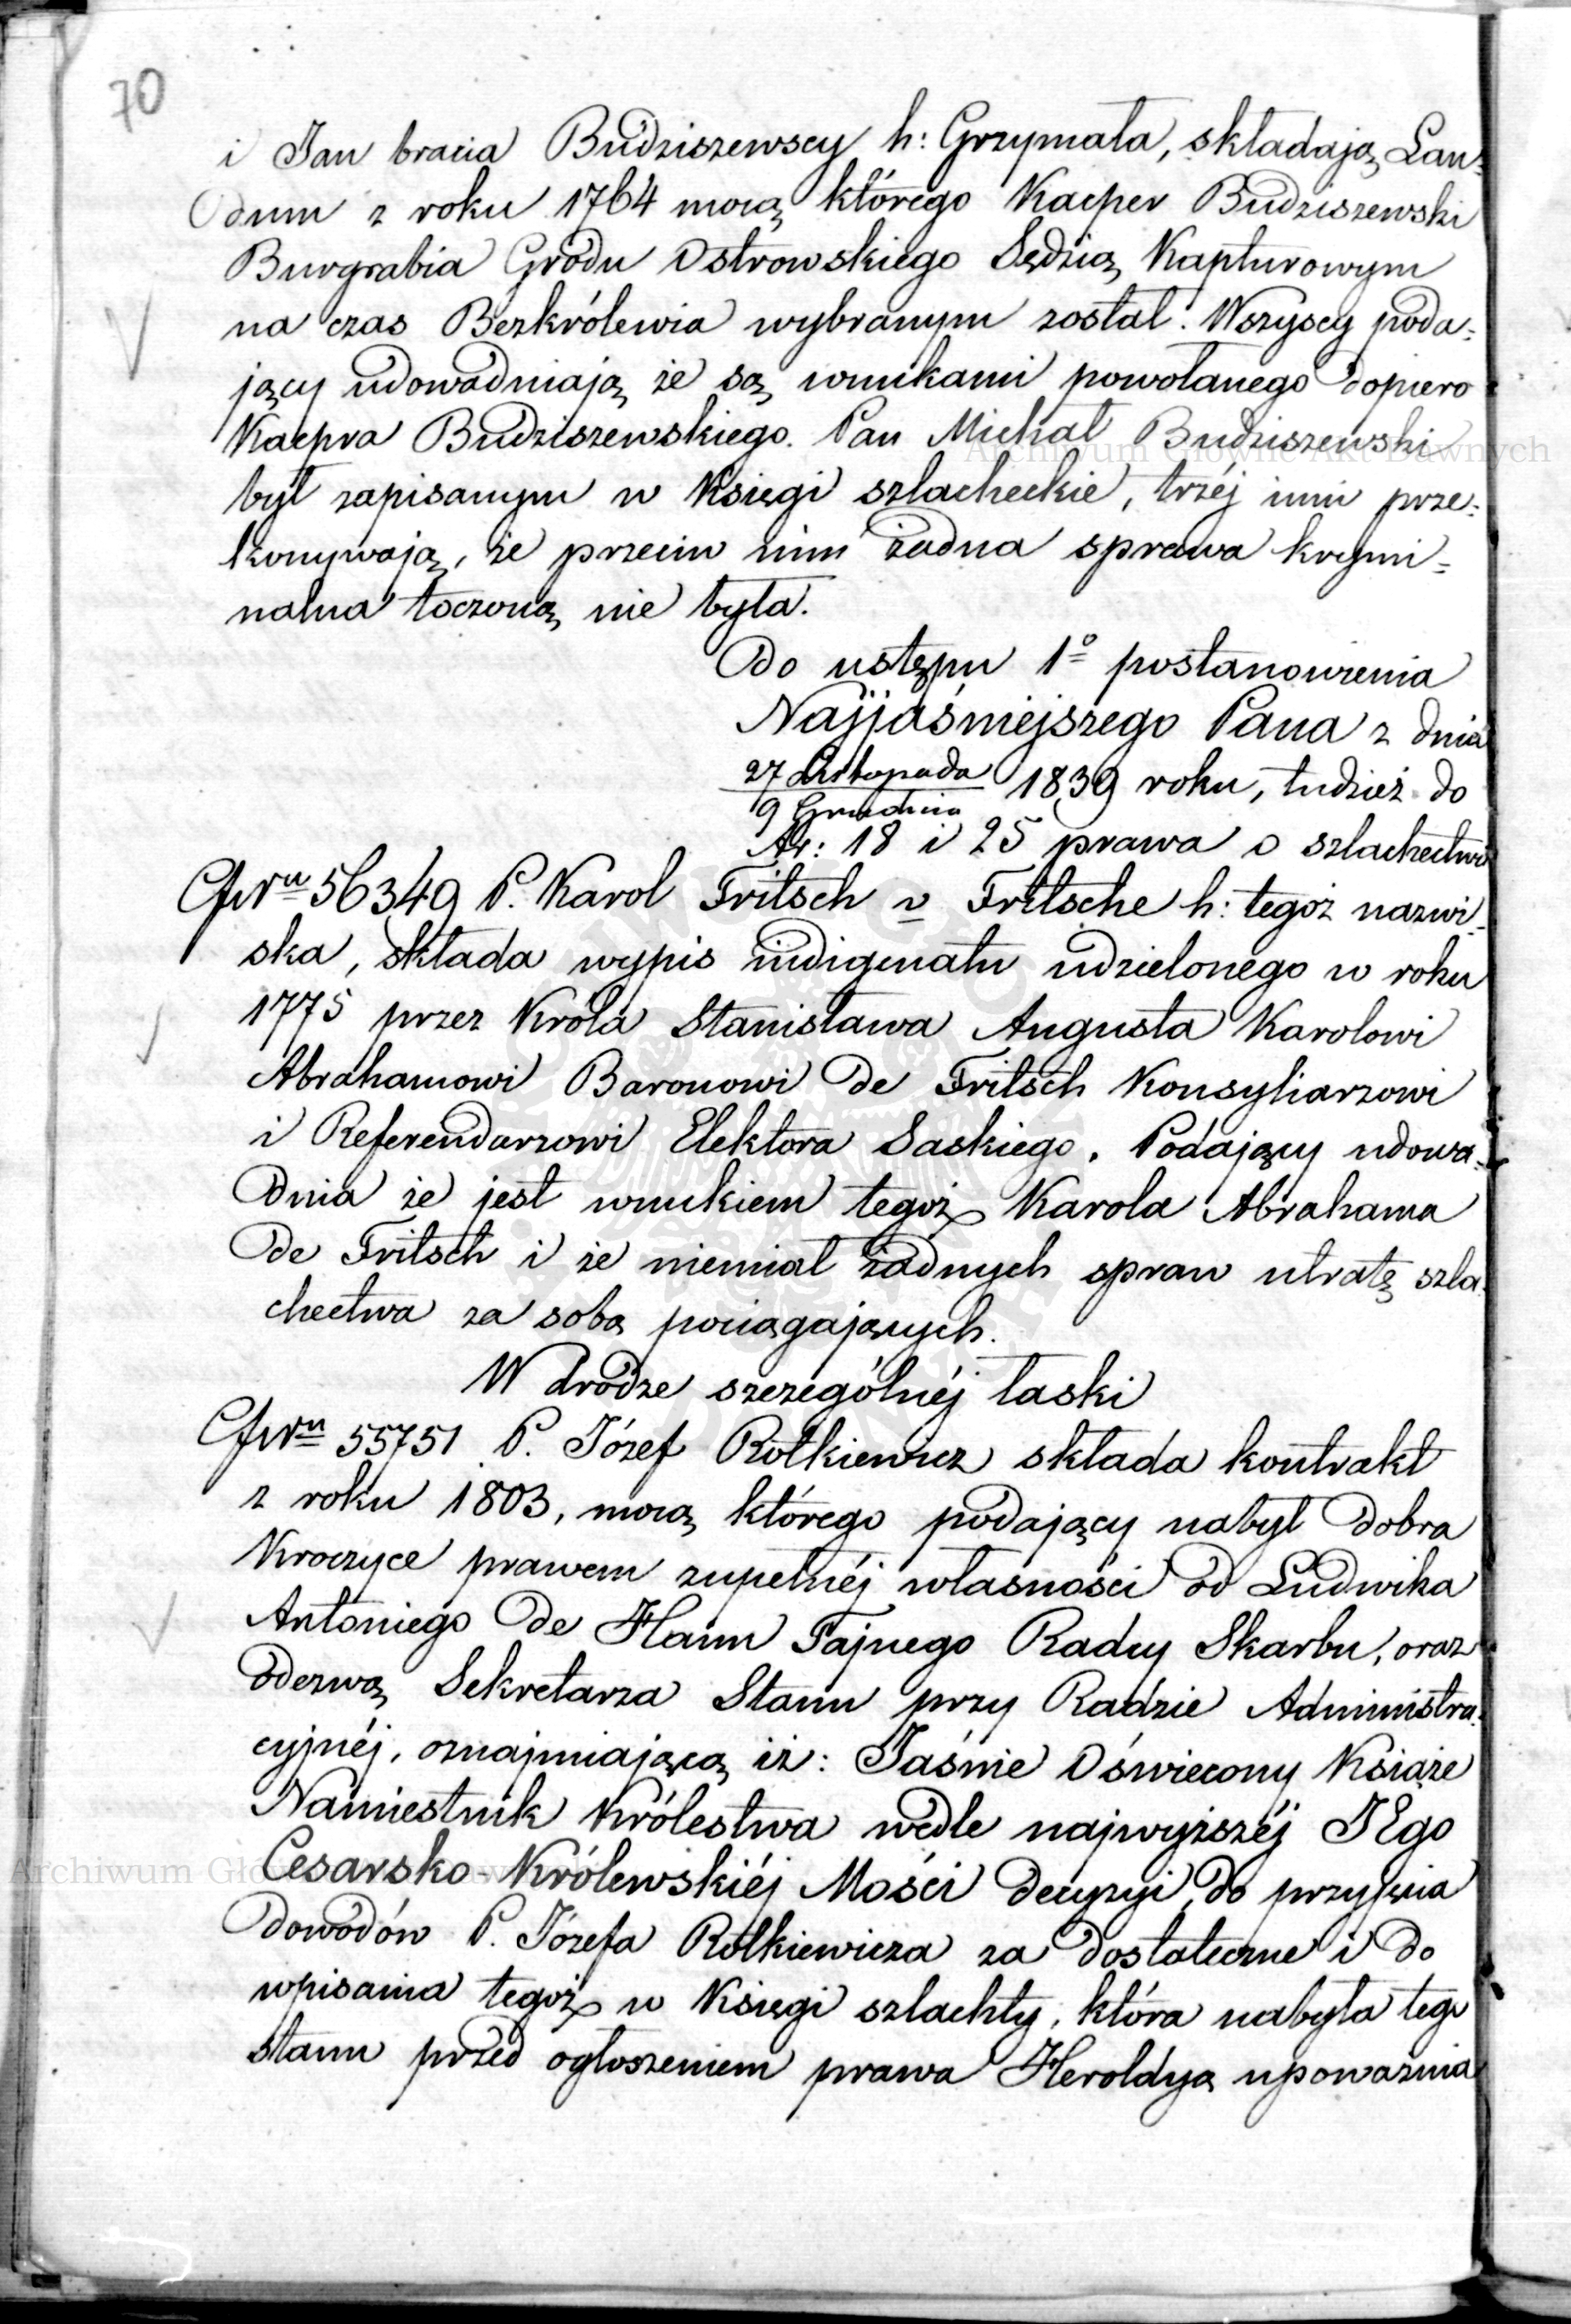 70
i Jan bracia Budziszewscy h: Grzymała, składają Lau=
dum z roku 1764 mocą którego Kacper Budziszewski
Burgrabia Grodu Ostrowskiego Sędzią Kapturowym
na czas Bezkrólewia wybranym został. Wszyscy poda=
jący udowadniają że są wnukami powołanego dopiero
Kacpra Budziszewskiego. Pan Michał Budziszewski
był zapisanym w Księgi szlacheckie, trzéj inni prze=
konywają, że przeciw nim żadna sprawa krymi=
nalna toczoną nie była.
Do ustępu 1º postanowienia
Najjaśniejszego Pana z dnia
27 Listopada
9 Grudnia 1839 roku, tudzież do
Ar: 18 i 25 prawa o szlachectwie
56349 P. Karol Fritsch v Fritsche h: tegoż nazwi=
ska, składa wypis indigenatu udzielonego w roku
1775 przez Króla Stanisława Augusta Karolowi
Abrahamowi Baronowi de Fritsch Konsyliarzowi
i Referendarzowi Elektora Saskiego. Podający udowa=
dnia że jest wnukiem tegoż Karola Abrahama
de Fritsch i że niemiał żadnych spraw utratę szla=
chectwa za sobą pociągających.
W drodze szczególnéj łaski
55751 P. Józef Rolkiewicz składa kontrakt
z roku 1803, mocą którego podający nabył dobra
Kroczyce prawem zupełnéj własności od Ludwika
Antoniego de Hann Tajnego Radcy Skarbu, oraz
odezwą Sekretarza Stanu przy Radzie Administra=
cyjnéj, oznajmiającą iż: Jaśnie Oświecony Książe
Namiestnik Królestwa wedle najwyższéj JEgo
Cesarsko-Królewskiéj Mości decyzyi, do przyjęcia
dowodów P. Józefa Rolkiewicza za dostateczne i do
wpisania tegoż w Księgi szlachty, która nabyła tego
stanu przed ogłoszeniem prawa Heroldyą upoważnia
Archiwum Główne Akt Dawnych